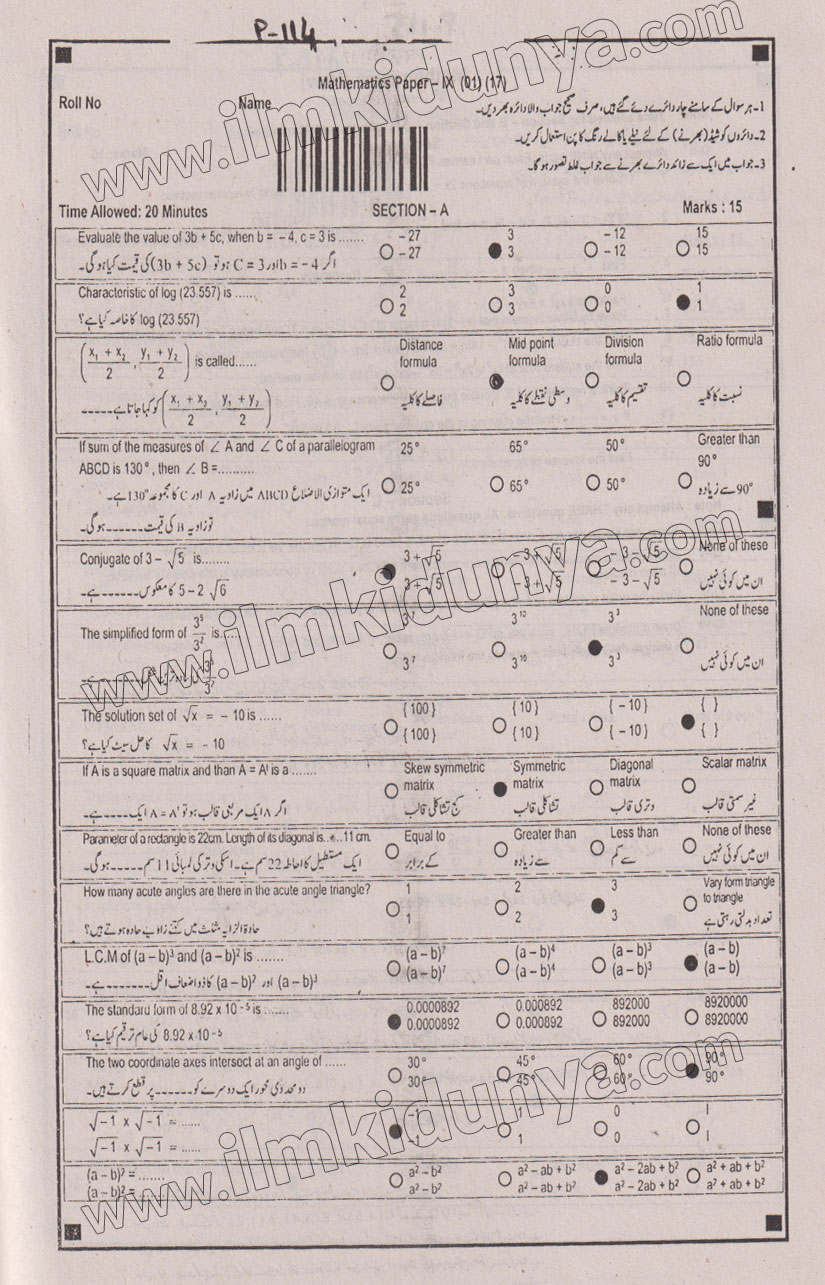 P-114
Mathematics Paper – IX (01) (17)
Roll No Name
1- ہر سوال کے سامنے چار دائرے دئے گئے ہیں، صرف صحیح جواب والا دائرہ بھر دیں۔
2- دائروں کو شیڈ (بھرنے) کے لئے نیلے یا کالے رنگ کا پن استعمال کریں۔
3- جواب میں ایک سے زائد دائرے بھرنے سے جواب غلط تصور ہو گا۔
Time Allowed: 20 Minutes SECTION – A Marks : 15
Evaluate the value of 3b + 5c, when b = – 4, c = 3 is ....... – 27 3 – 12 15
اگر b = – 4 اور C = 3 ہو تو (3b + 5c) کی قیمت کیا ہو گی۔ – 27 3 – 12 15
Characteristic of log (23.557) is ...... 2 3 0 1
log (23.557) کا خاصہ کیا ہے؟ 2 3 0 1
(x₁ + x₂ / 2 , y₁ + y₂ / 2) is called...... Distance formula Mid point formula Division formula Ratio formula
(x₁ + x₂ / 2 , y₁ + y₂ / 2) کو کہا جاتا ہے----- فاصلے کا کلیہ وسطی نقطے کا کلیہ تقسیم کا کلیہ نسبت کا کلیہ
If sum of the measures of ∠ A and ∠ C of a parallelogram 25° 65° 50° Greater than
ABCD is 130°, then ∠ B =.......... 90°
ایک متوازی الاضلاع ABCD میں زاویہ A اور C کا مجموعہ 130° ہے۔ 25° 65° 50° 90° سے زیادہ
تو زاویہ B کی قیمت------ ہو گی۔
Conjugate of 3 – √5 is...... 3 + √5 – 3 + √5 – 3 – √5 None of these
5 – 2 √6 کا معکوس------ ہے۔ 3 + √5 – 3 + √5 – 3 – √5 ان میں کوئی نہیں
The simplified form of 3⁵/3² is...... 3⁷ 3¹⁰ 3³ None of these
3⁵/3² 3⁷ 3¹⁰ 3³ ان میں کوئی نہیں
The solution set of √x = – 10 is ...... { 100 } { 10 } { – 10 } { }
√x = – 10 کا حل سیٹ کیا ہے؟ { 100 } { 10 } { – 10 } { }
If A is a square matrix and than A = Aᵗ is a ....... Skew symmetric matrix Symmetric matrix Diagonal matrix Scalar matrix
اگر A ایک مربعی قالب ہو تو A = Aᵗ ایک-----ہے۔ کج تشاکلی قالب تشاکلی قالب وتری قالب غیر سمتی قالب
Parameter of a rectangle is 22cm. Length of its diagonal is......11 cm. Equal to Greater than Less than None of these
ایک مستطیل کا احاطہ 22 سم ہے۔ اسکی وتر کی لمبائی 11 سم----- ہو گی۔ کے برابر سے زیادہ سے کم ان میں کوئی نہیں
How many acute angles are there in the acute angle triangle? 1 2 3 Vary form triangle to triangle
حادۃ الزاویہ مثلث میں کتنے زاویے حادہ ہوتے ہیں؟ 1 2 3 تعداد بدلتی رہتی ہے
L.C.M of (a – b)³ and (a – b)² is ....... (a – b)⁷ (a – b)⁴ (a – b)³ (a – b)
(a – b)³ اور (a – b)² کا ذو اضعاف اقل-------ہے۔ (a – b)⁷ (a – b)⁴ (a – b)³ (a – b)
The standard form of 8.92 x 10⁻⁵ is ....... 0.0000892 0.000892 892000 8920000
8.92 x 10⁻⁵ کی عام ترقیم کیا ہے؟ 0.0000892 0.000892 892000 8920000
The two coordinate axes intersect at an angle of ...... 30° 45° 60° 90°
دو محددی محور ایک دوسرے کو------ پر قطع کرتے ہیں۔ 30° 45° 60° 90°
√–1 x √–1 = ...... –1 1 0 I
√–1 x √–1 = ...... –1 1 0 I
(a – b)² = ....... a² – b² a² – ab + b² a² – 2ab + b² a² + ab + b²
(a – b)² = ....... a² – b² a² – ab + b² a² – 2ab + b² a² + ab + b²
www.ilmkidunya.com
www.ilmkidunya.com
www.ilmkidunya.com